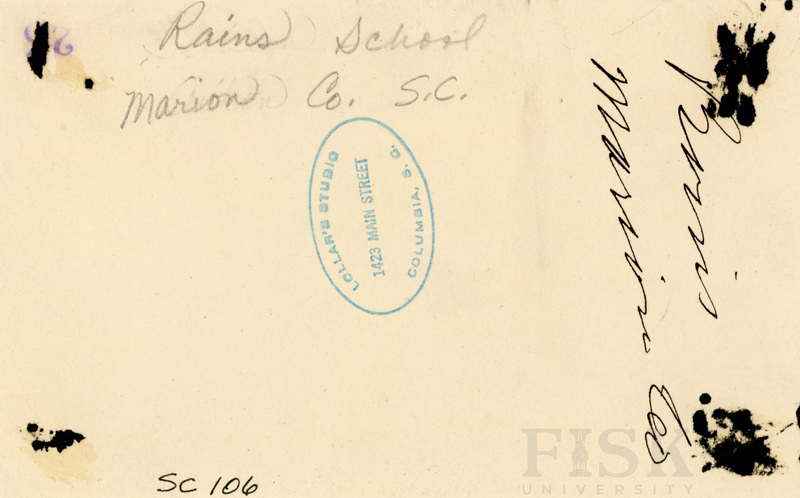 Rains School
Marion Co. S.C.
LOLLAR'S STUDIO
1423 MAIN STREET
COLUMBIA, S. C.
Marion Co
SC 106
FISK
UNIVERSITY